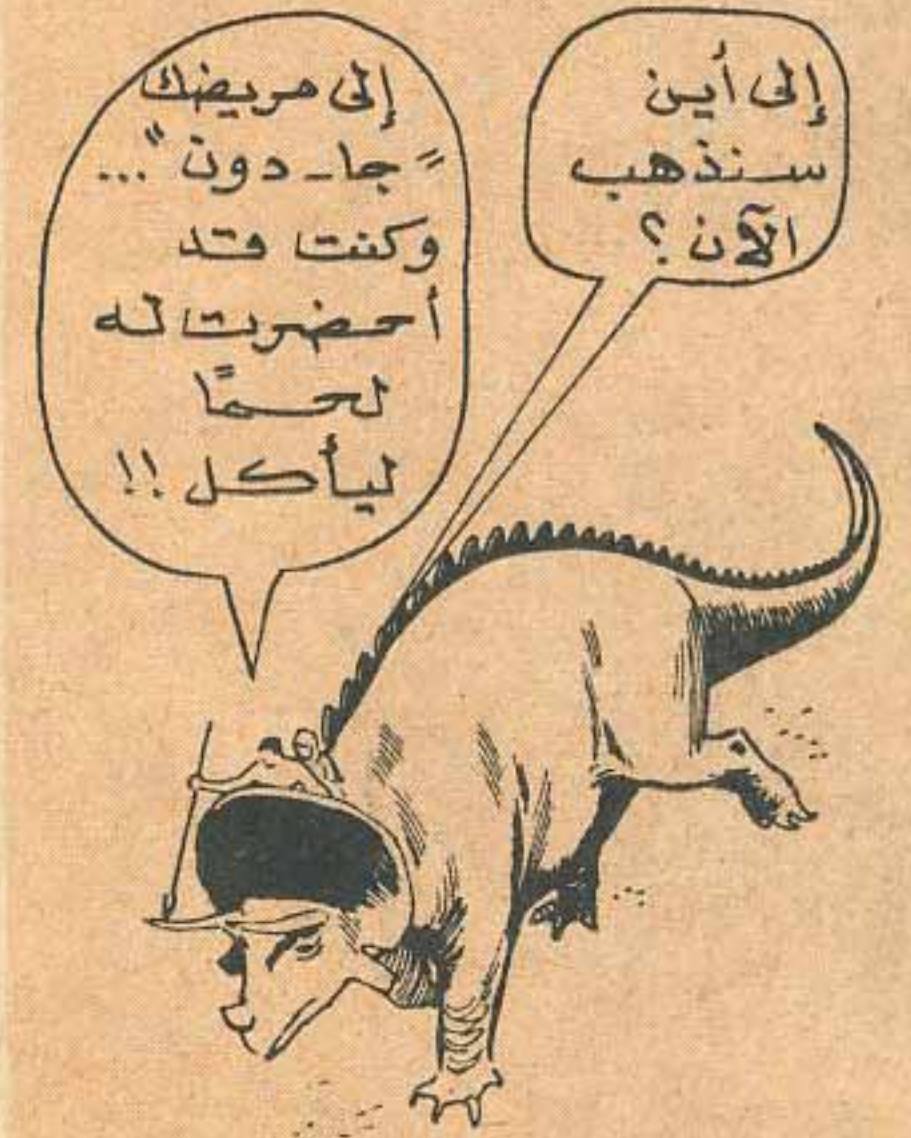 إلى أين
سنذهب
الآن؟
إلى مريضك
"جار دون"...
وكنت قد
أحضرت له
لحمًا
ليأكل!!